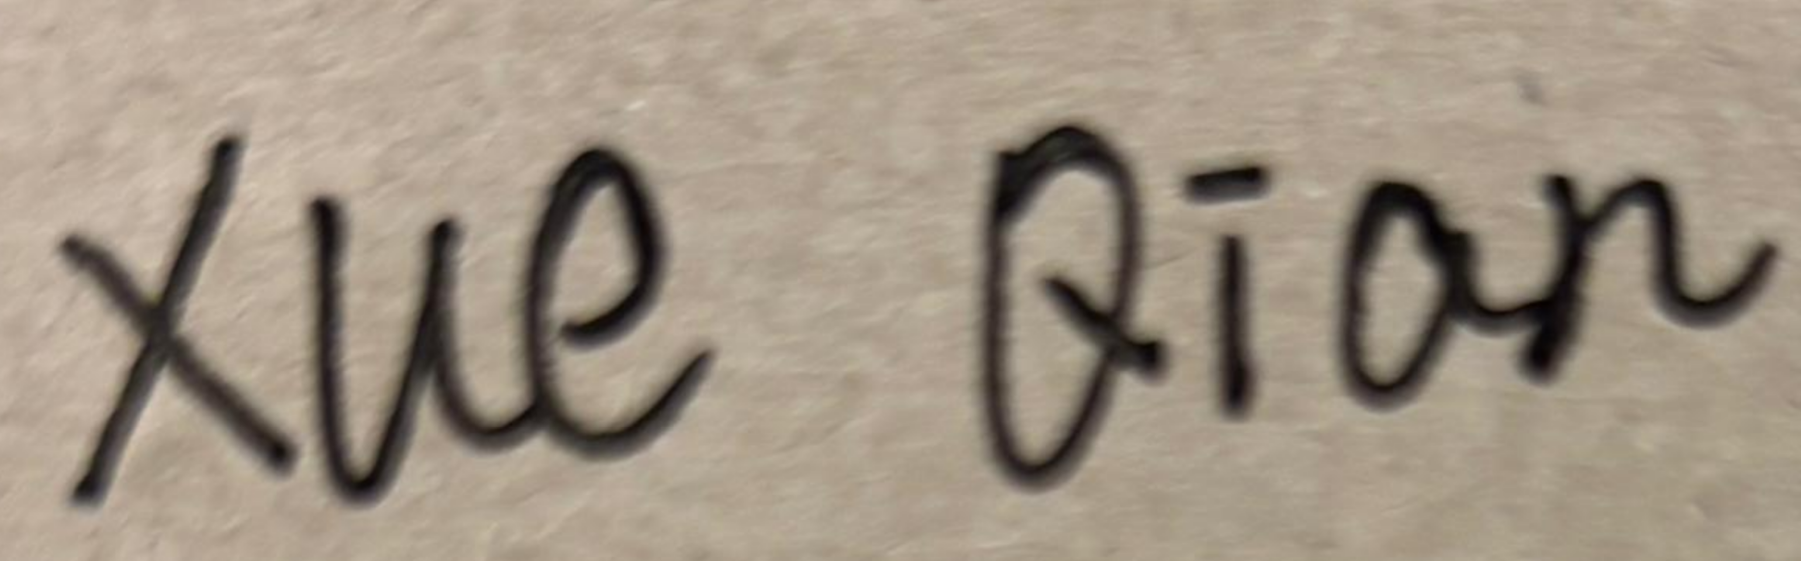 Xue Qian